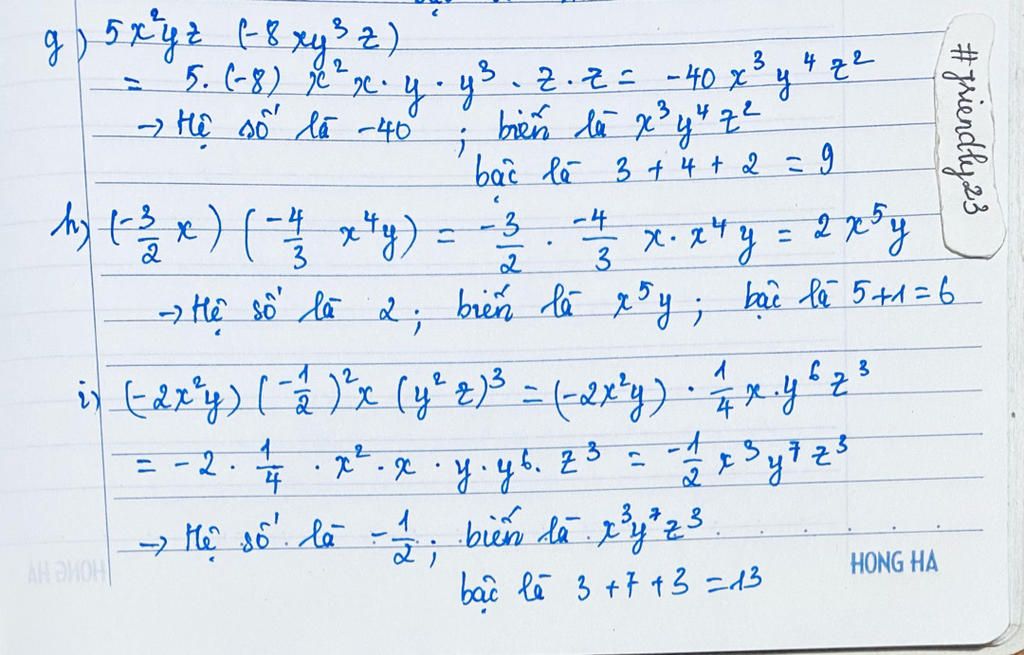 g) 5x²yz (-8xy³z)
= 5.(-8) x²x.y.y³.z.z = -40x³y⁴z²
→ Hệ số là -40 ; biến là x³y⁴z²
bậc là 3 + 4 + 2 = 9
h) (-3/2 x) (-4/3 x⁴y) = -3/2 . -4/3 x.x⁴y = 2x⁵y
→ Hệ số là 2 ; biến là x⁵y ; bậc là 5+1 = 6
i) (-2x²y) (-1/2)²x (y²z)³ = (-2x²y) . 1/4 x.y⁶z³
= -2 . 1/4 . x².x.y.y⁶.z³ = -1/2 x³y⁷z³
→ Hệ số là -1/2 ; biến là x³y⁷z³
bậc là 3 + 7 + 3 = 13
#friendly23
HONG HA
HONG HA